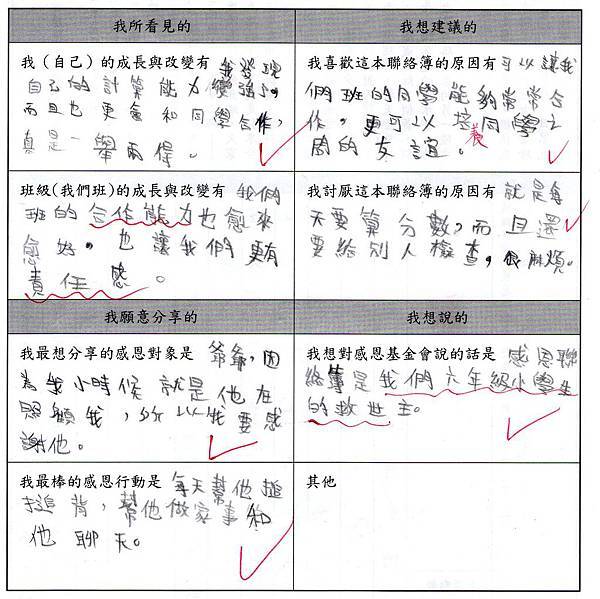 我所看見的
我想建議的
我（自己）的成長與改變有 我發現
自己的計算能力變強了，
而且也更會和同學合作，
真是一舉兩得。
我喜歡這本聯絡簿的原因有 可以讓我
們班的同學能夠常常合
作，更可以培養同學之
間的友誼。
班級(我們班)的成長與改變有 我們
班的合作能力也愈來
愈好。也讓我們更有
責任感。
我討厭這本聯絡簿的原因有 就是每
天要算分數，而且還
要給別人檢查，很麻煩。
我願意分享的
我想說的
我最想分享的感恩對象是 爺爺，因
為我小時候就是他在
照顧我，所以我要感
謝他。
我想對感恩基金會說的話是 感恩聯
絡簿是我們六年級小學生
的救世主。
我最棒的感恩行動是 每天幫他搥
搥背，幫他做家事和
他聊天。
其他